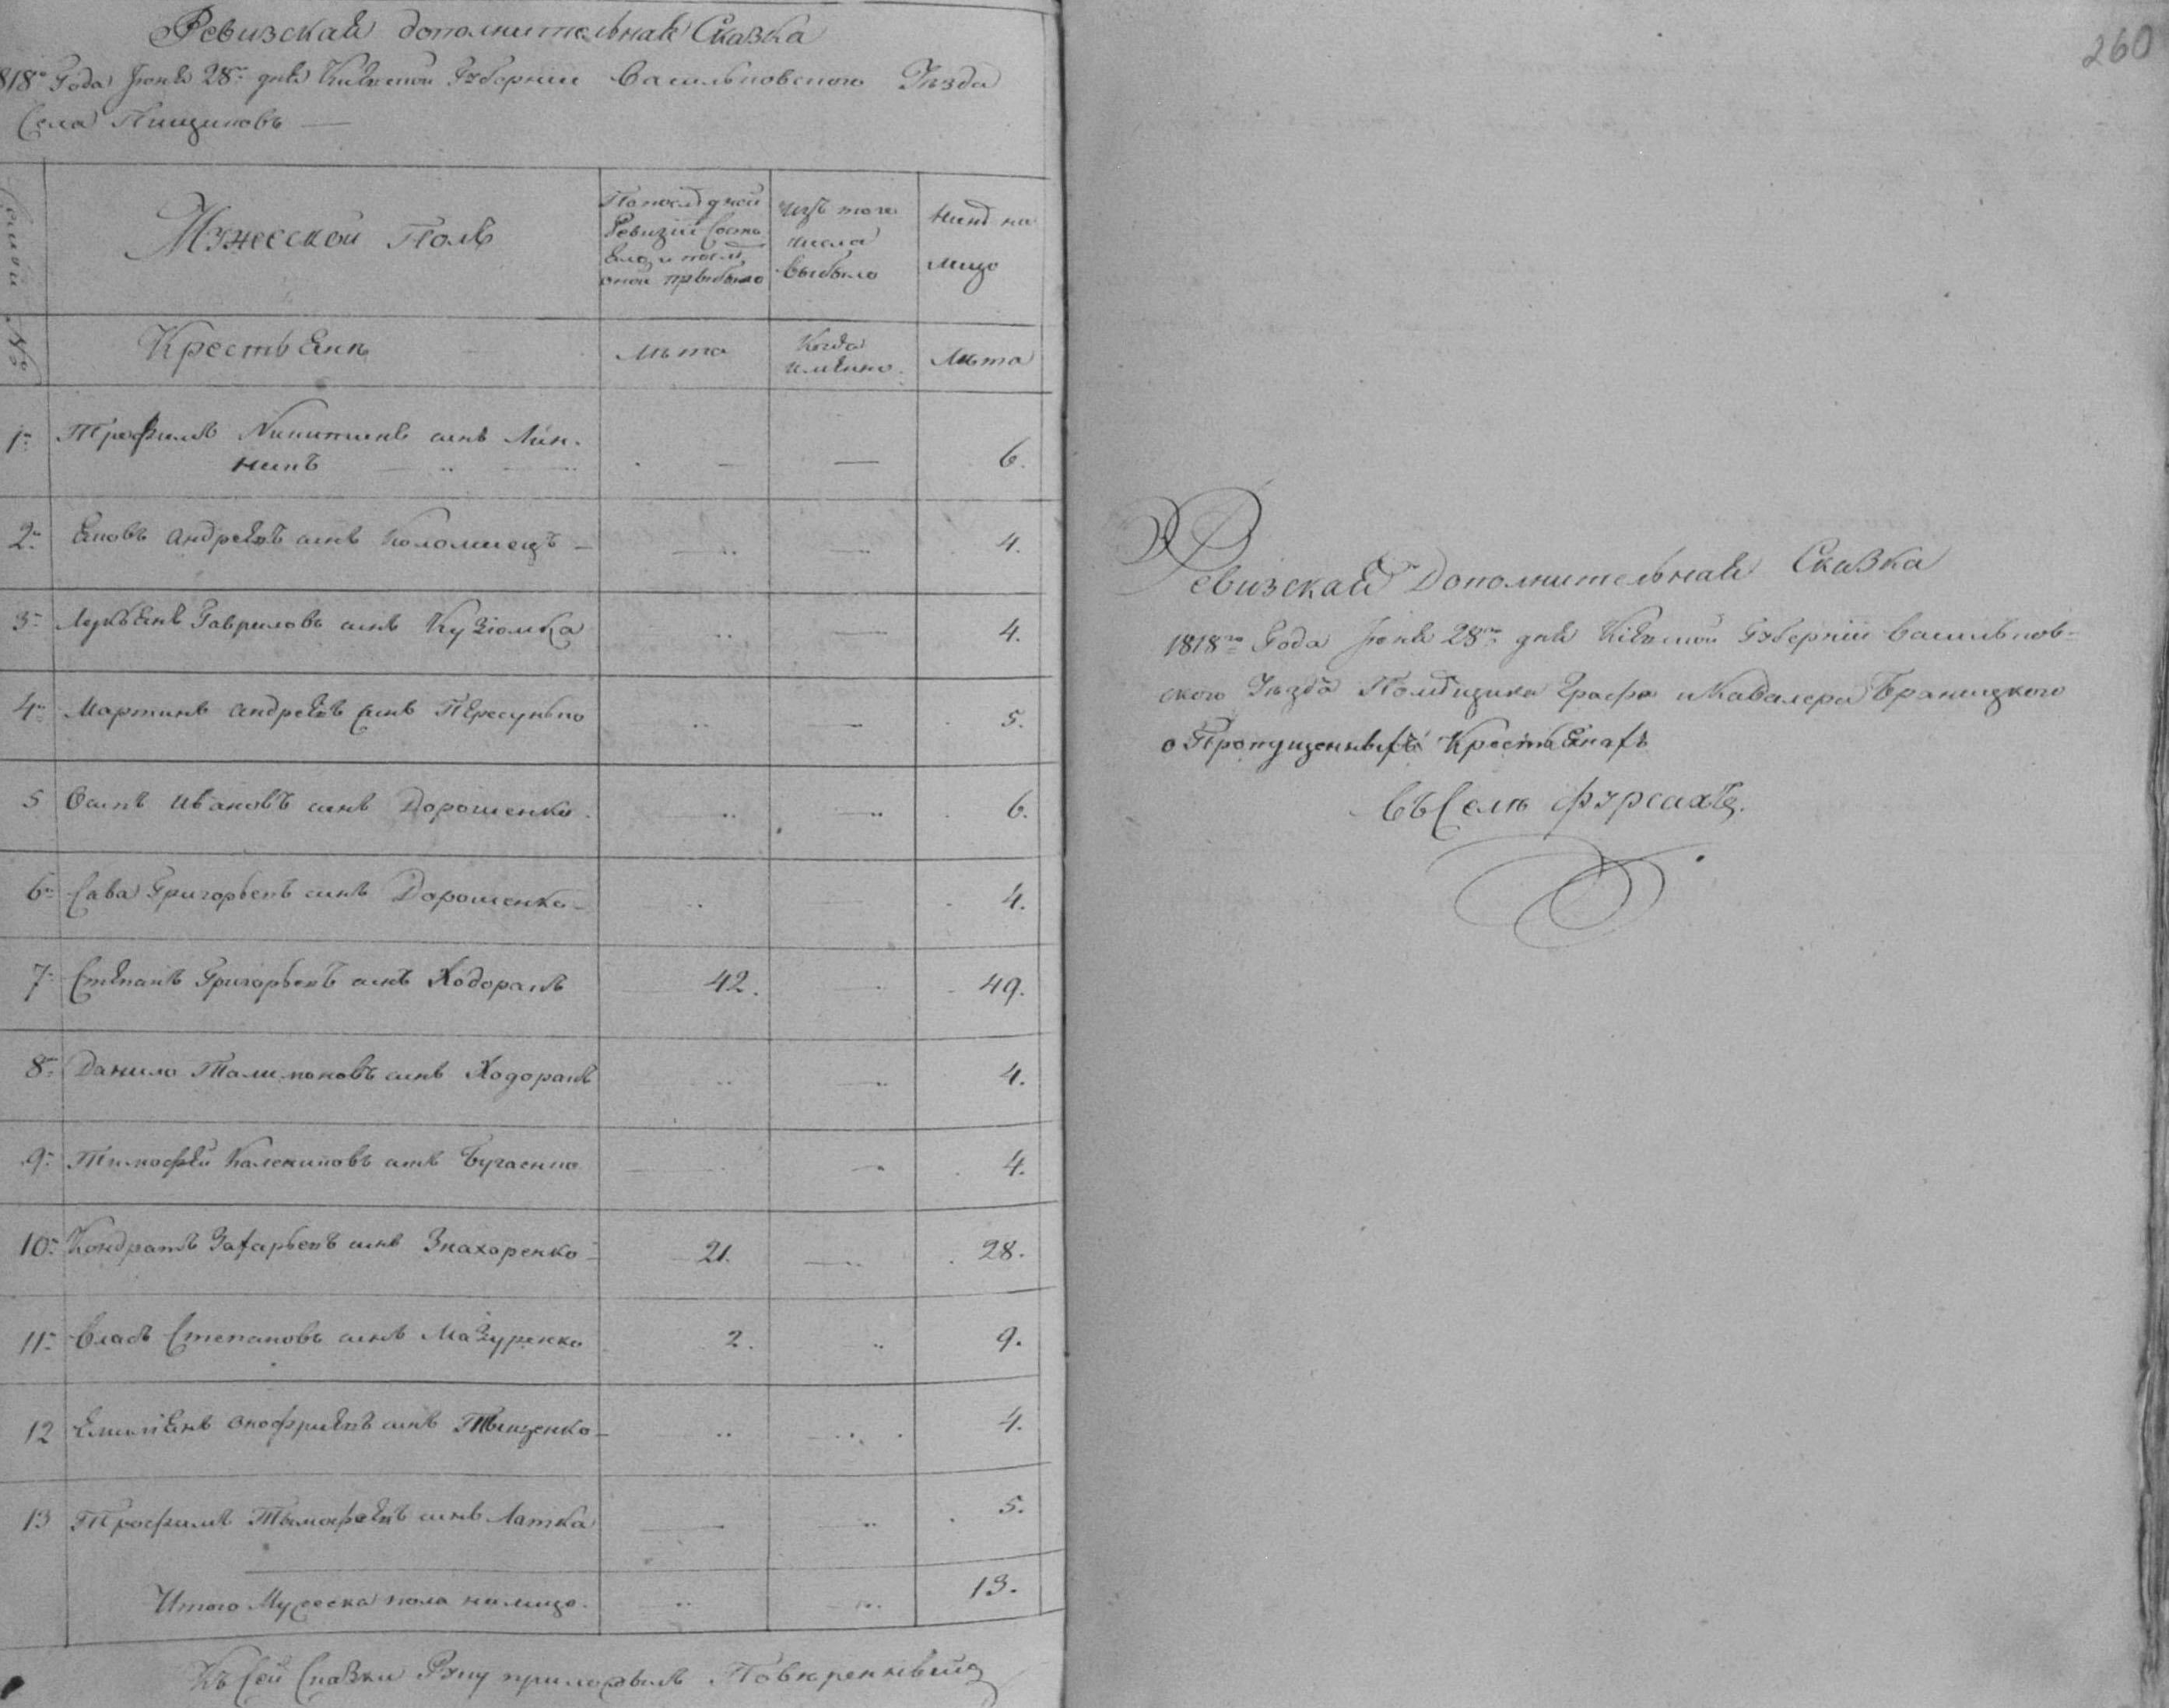 Ревизская дополнительная Сказка
818го Года Іюня 28го дня Киевской Губерніи Васильковского Уезда
Села Пищиковъ
Семьи №
Мужескои Полъ
По последней Ревизіи Состо
яло и после оной прибыло
Изъ того числа выбыло
Ныне на лицо
Крестьяне
Лета
Когда имянно.
Лета
1. Трофимъ Никитинъ синъ Лин-
никъ 6.
2. Яковъ Андреевъ синъ Коломиецъ 4.
3. Лукьянъ Гавриловъ синъ Кузіомка 4.
4. Мартинъ Андреевъ синъ Пересунько 5.
5 Осипъ Ивановъ синъ Дорошенко 6.
6. Сава Григорьевъ синъ Дорошенко 4.
7. Степанъ Григорьевъ синъ Ходоракъ 42. 49.
8. Данило синъ Ходоракъ 4.
9. Тимофей синъ Бугаенко 4.
10. Кондратъ Захарьевъ синъ Знахоренко 21. 28.
11. Власъ Степановъ синъ Мазуренко 2. 9.
12 Емилиянъ Онофриевъ синъ Тыщенко 4.
13 Трофимъ Тимофеевъ синъ Латка 5.
Итого Мужеска пола налицо. 13.
Къ сей Сказки Руку приложилъ Поверенный
260
Ревизская Дополнительная Сказка
1818го Года Іюня 28го дня Кіевской Губерніи Васильков-
ского Уезда Помещика Графа и Кавалера Браницкого
о Пропущенныхъ Крестьянахъ
Въ Селе Фурсахъ.